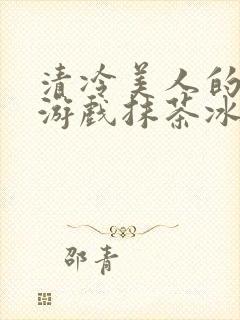 清冷美人的
游戏抹茶冰
邵青